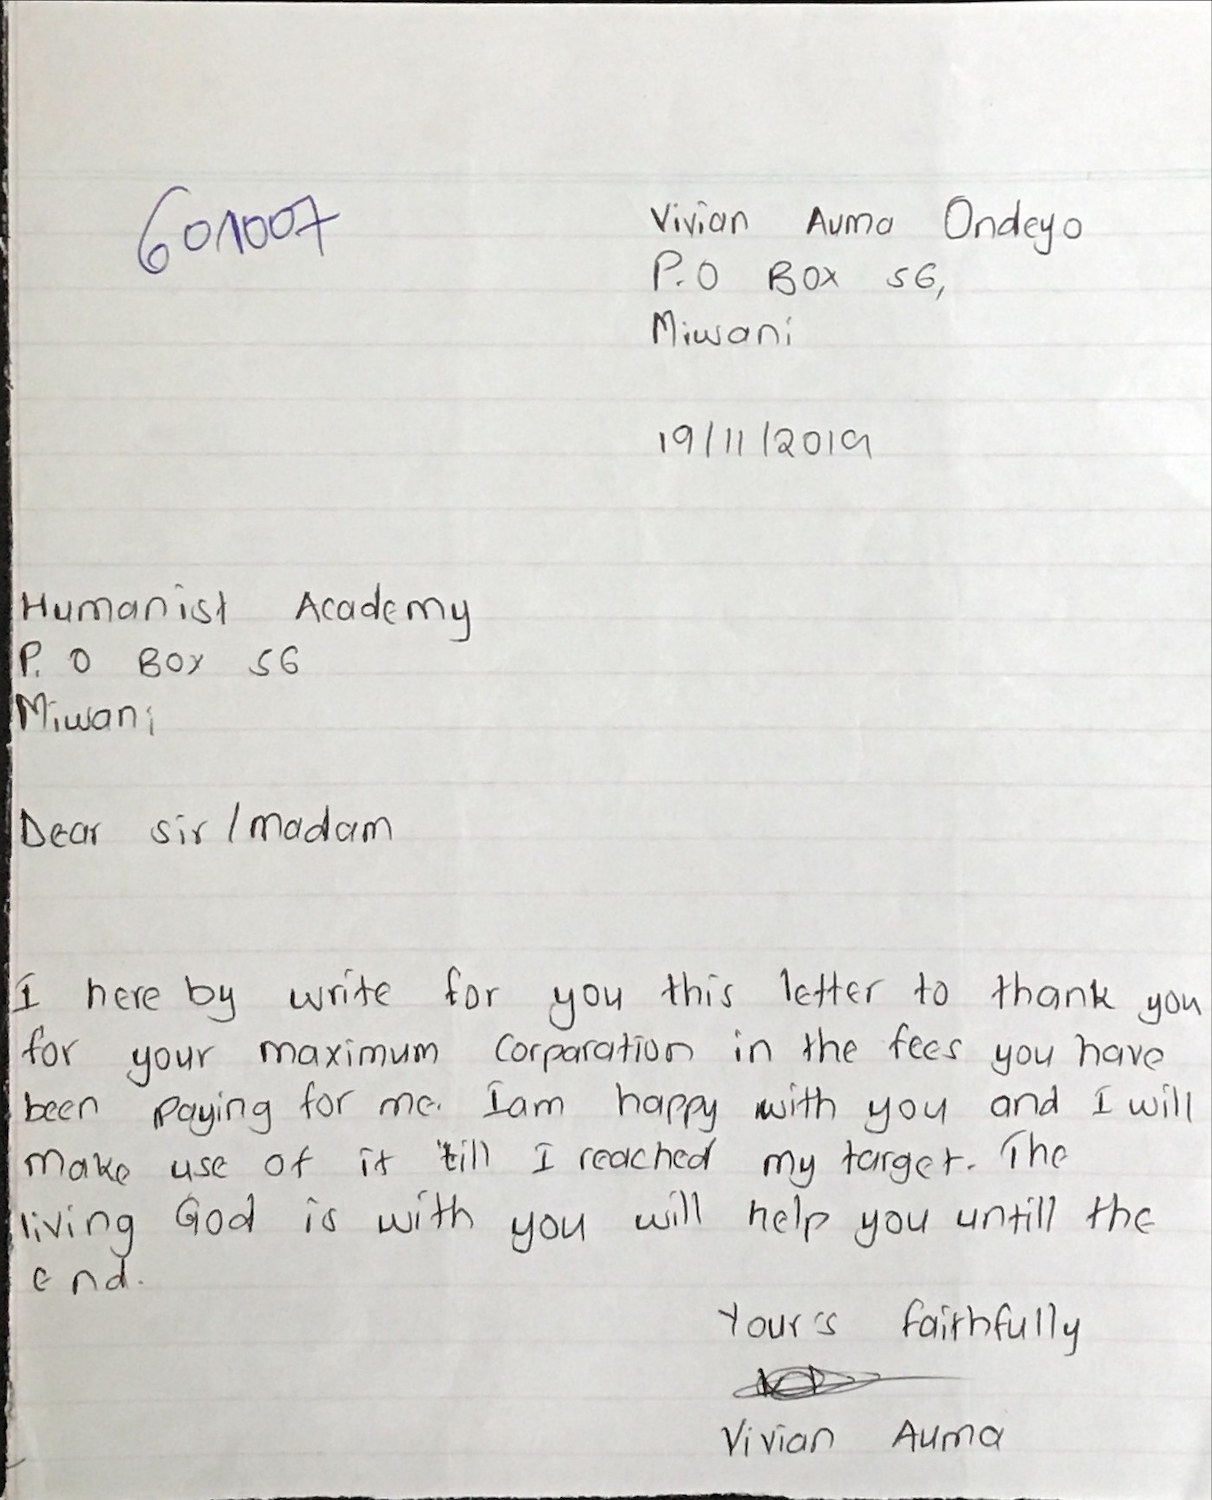 601007
Vivian Auma Ondeyo
P.O Box 56,
Miwani
19/11/2019
Humanist Academy
P. O Box 56
Miwani
Dear sir/madam
I here by write for you this letter to thank you
for your maximum Corparation in the fees you have
been paying for me. Iam happy with you and I will
make use of it 'till I reached my target. The
living God is with you will help you untill the
end.
Your's faithfully
Vivian Auma